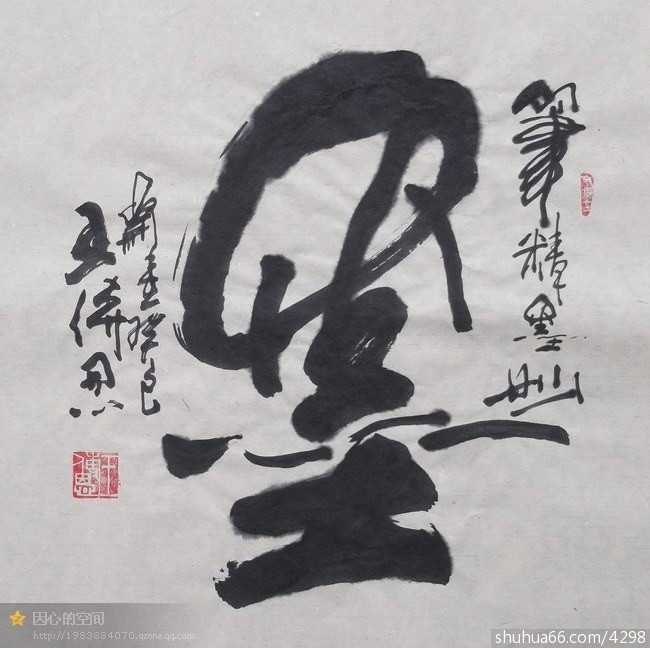 筆精墨妙
墨
王傳恩
因心的空间
http://1983884070.qzone.qq.com
shuhua66.com/4298